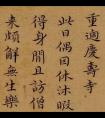 重過慶壽寺
此日偶因休沐暇
得身閒且訪僧
來頗解無生樂